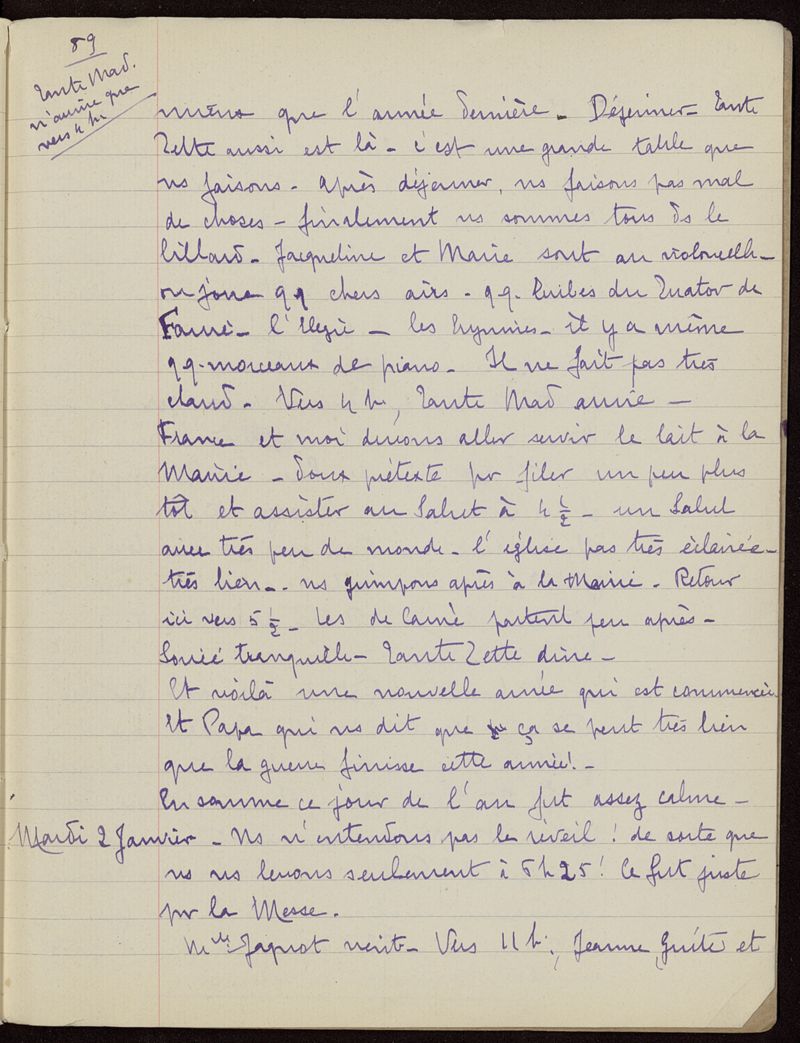 89
Tante Mad.
n'arrive que
vers 4 hr
mieux que l'année dernière - Déjeuner - Tante
Zette aussi est là - c'est une grande table que
ns faisons - après déjeuner, ns faisons pas mal
de choses - finalement ns sommes tous ds le
billard - Jacqueline et Marie sont au violoncelle -
on joue qq chers airs - qq. bribes du Quatuor de
Fauré - l'Elégie - les Erynnies - il y a même
qq. morceaux de piano - Il ne fait pas très
chaud - Vers 4 h, Tante Mad arrive -
France et moi devons aller servir le lait à la
Mairie - doux prétexte pr filer un peu plus
tôt et assister au Salut à 4 1/2 - un Salut
avec très peu de monde - l'église pas très éclairée -
très bien - ns grimpons après à la Mairie - Retour
ici vers 5 1/2 - les de Carné partent peu après -
Soirée tranquille - Tante Zette dîne -
Et voilà une nouvelle année qui est commencée
Et Papa qui ns dit que ça se peut très bien
que la guerre finisse cette année! -
En somme ce jour de l'an fut assez calme -
Mardi 2 Janvier - Ns n'entendons pas le réveil! de sorte que
ns ns levons seulement à 6h25! Ce fut juste
pr la Messe.
Melle Jaquot vient - Vers 11 h., Jeanne, Guite et